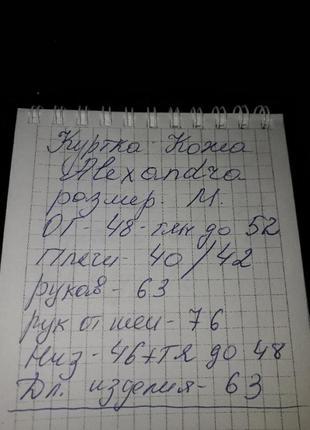 Куртка - Кожа
Alexandra
размер. М.
ОГ - 48 - тян до 52
Плечи - 40 / 42
рукав - 63
рук от шеи - 76
Низ - 46 +тя до 48
Дл. изделия - 63